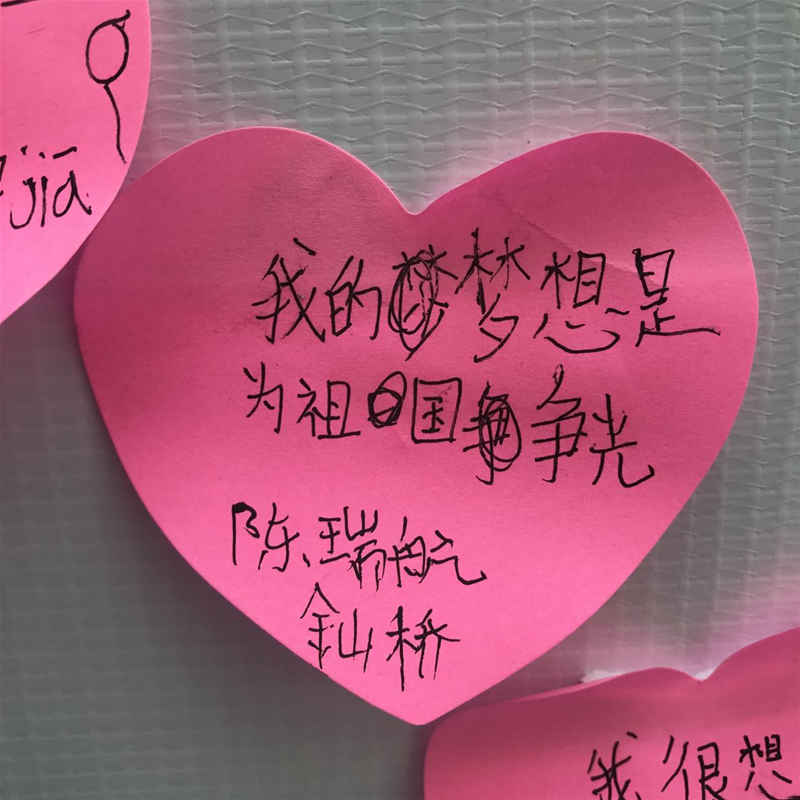 jiā
我的梦想是
为祖国争光
陈瑞航
金山桥
我很想